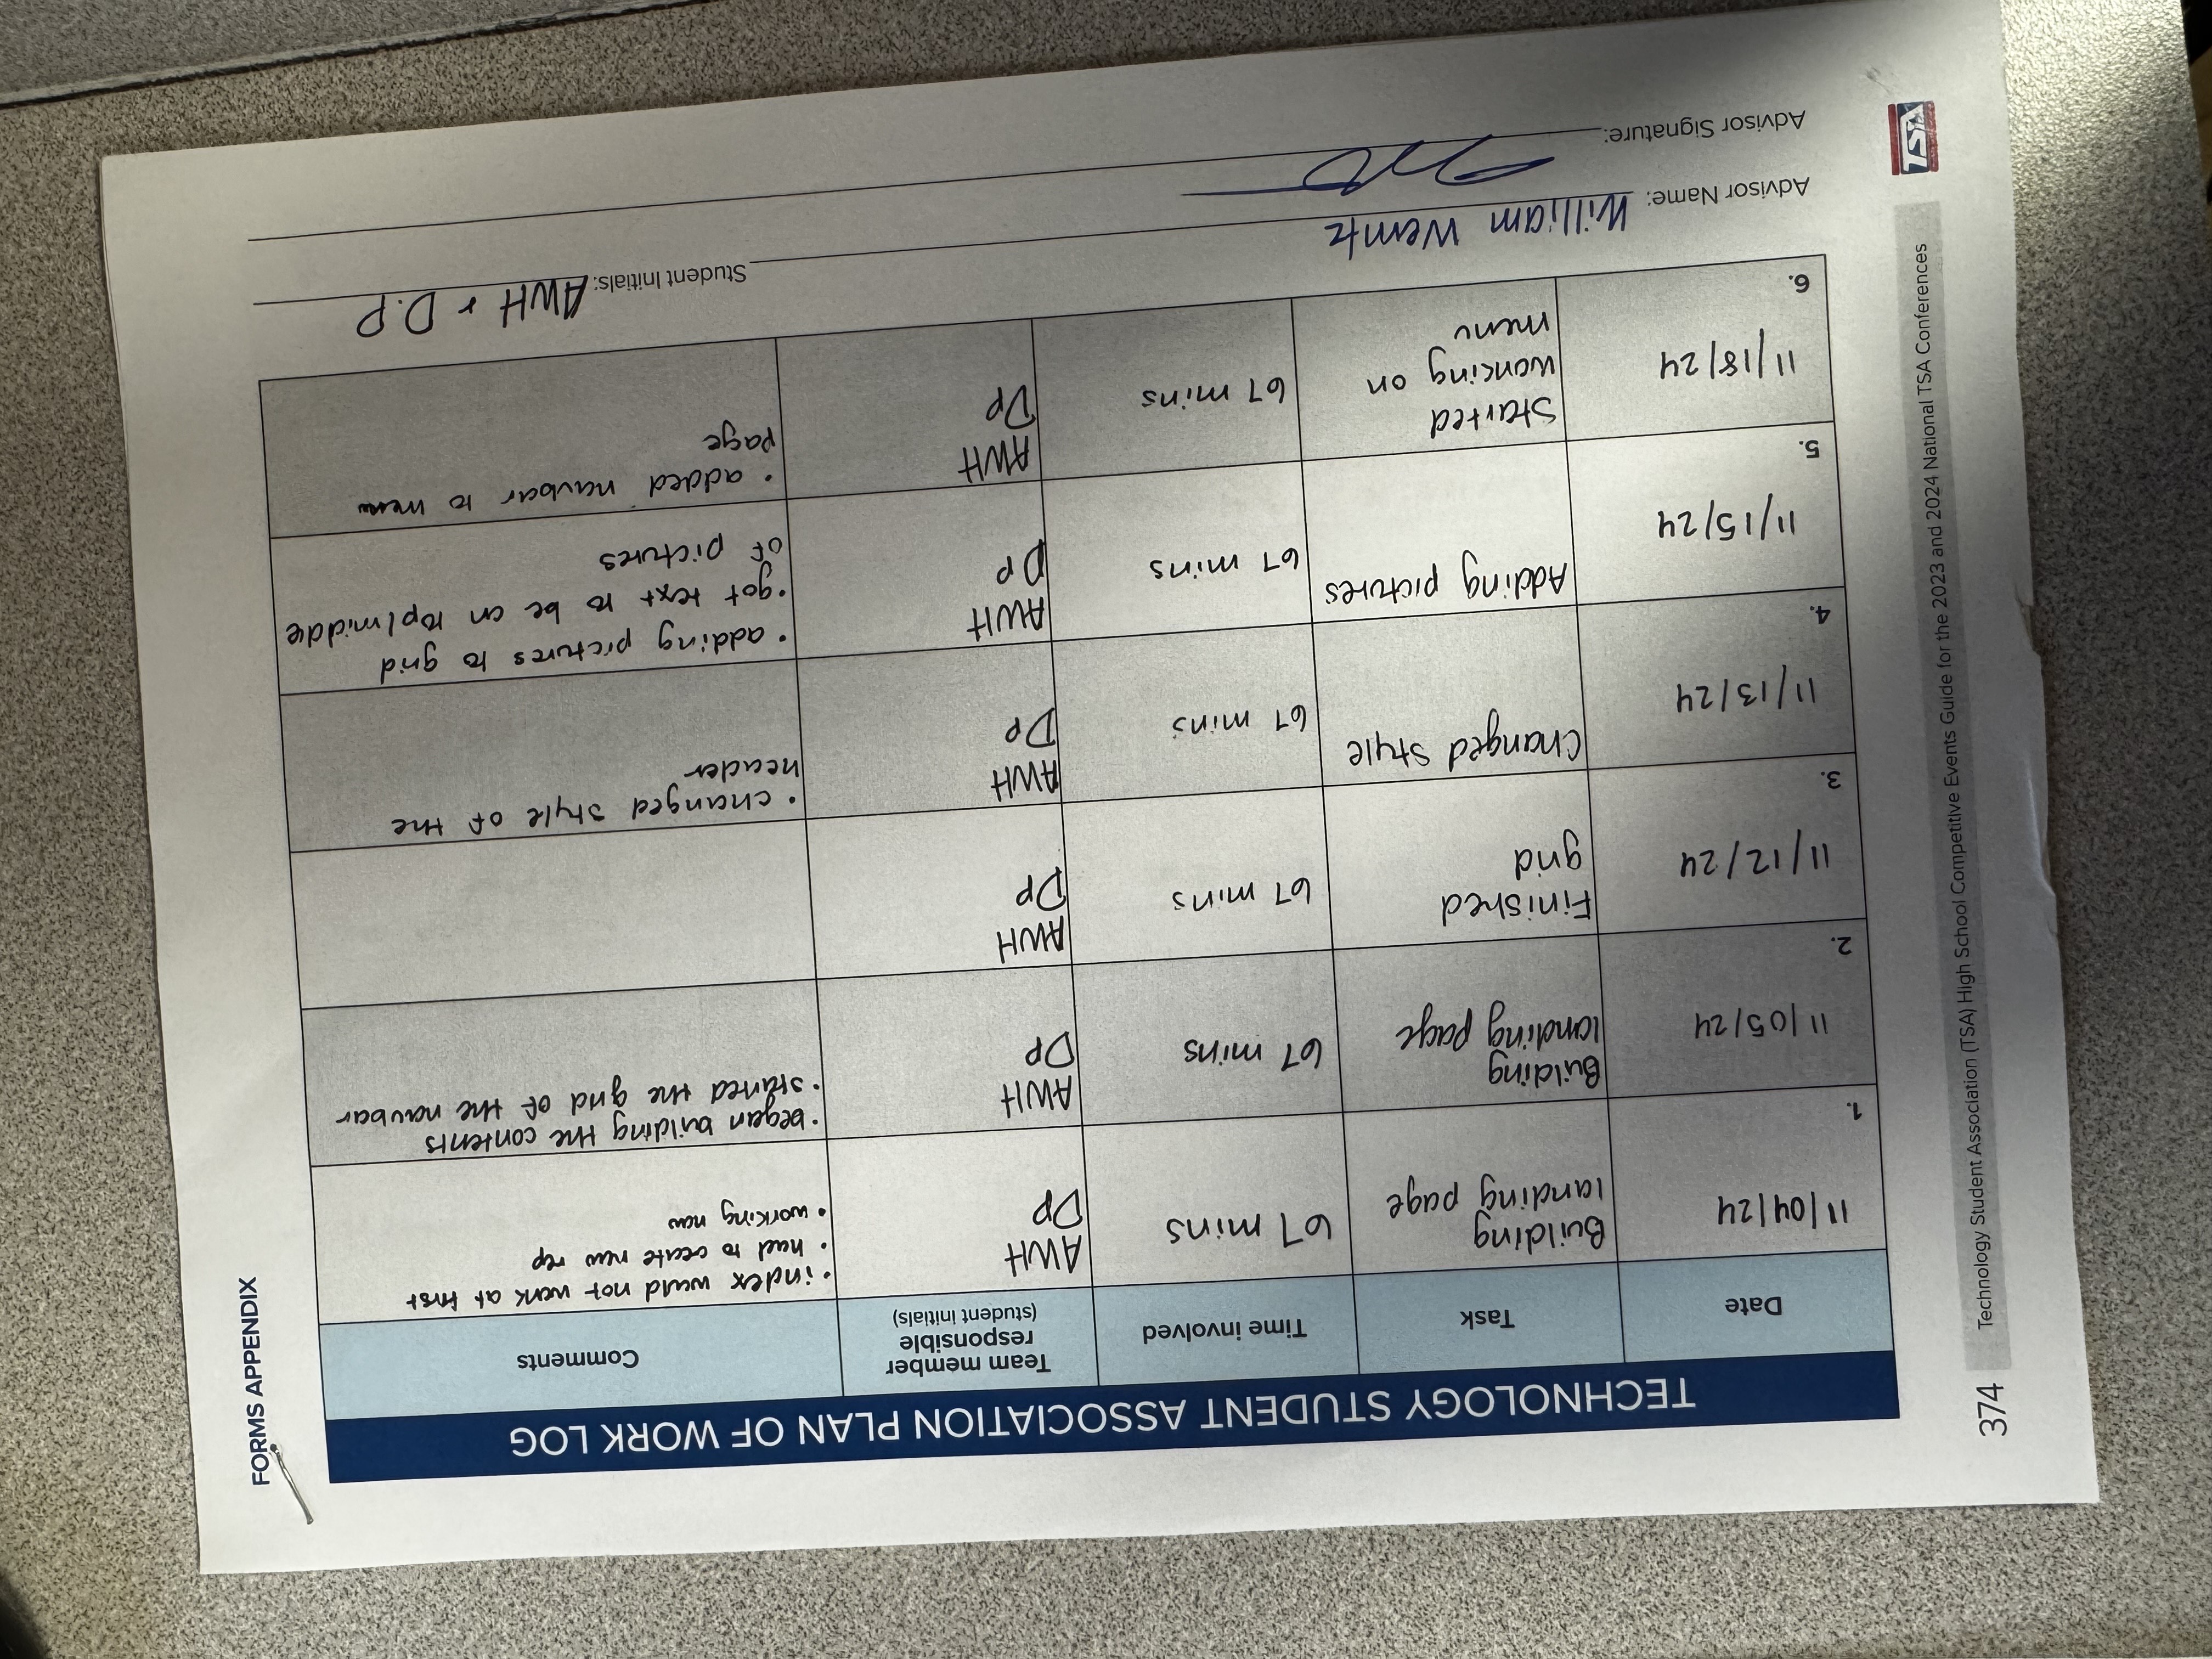 FORMS APPENDIX
TECHNOLOGY STUDENT ASSOCIATION PLAN OF WORK LOG
Date Task Time involved Team member responsible (student initials) Comments
1. 11/04/24 Building landing page 67 mins AWH DP • index would not work at first • had to create new rep • working now
2. 11/05/24 Building landing page 67 mins AWH DP • began building the contents • started the grid of the navbar
3. 11/12/24 Finished grid 67 mins AWH DP
4. 11/13/24 Changed style 67 mins AWH DP • changed style of the header
5. 11/15/24 Adding pictures 67 mins AWH DP • adding pictures to grid • got text to be on top/middle of pictures
6. 11/18/24 Started working on menu 67 mins AWH DP • added navbar to menu page
Advisor Name: William Wentz Student Initials: AWH + D.P
Advisor Signature:
374 Technology Student Association (TSA) High School Competitive Events Guide for the 2023 and 2024 National TSA Conferences
TSA